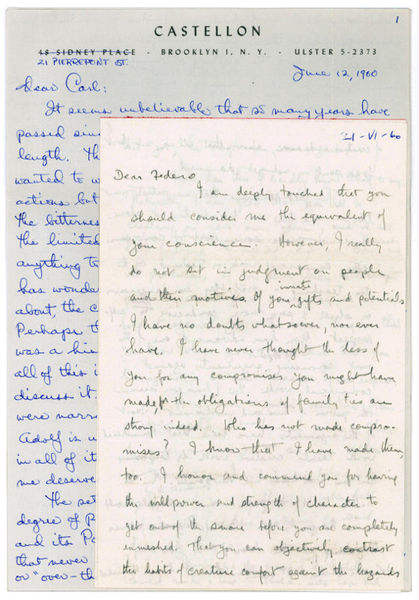 1
CASTELLON
48 SIDNEY PLACE · BROOKLYN 1, N. Y. · ULSTER 5-2373
21 PIERREPONT ST.
June 12, 1960
Dear Carl:
It seems unbelievable that so many years have
passed
length. Th
wanted to w
actions but
the bitterness
the limited
anything to
has wonde
about, the c
Perhaps th
was a hi
all of this i
discuss it.
were narro
Adolf is u
in all of it
me deserve
The set
degree of P
and its Pa
that never
or "over-th
21-VI-60
Dear Federo,
I am deeply touched that you
should consider me the equivalent of
your conscience. However, I really
do not sit in judgment on people
and their motives. Of your innate gifts and potentials
I have no doubts whatsoever, nor ever
have. I have never thought the less of
you for any compromises you might have
made, for the obligations of family ties are
strong indeed. Who has not made compro-
mises? I know that I have made them
too. I honor and commend you for having
the will power and strength of character to
get out of the snare before you are completely
enmeshed. That you can objectively contrast
the habits of creature comfort against the hazards